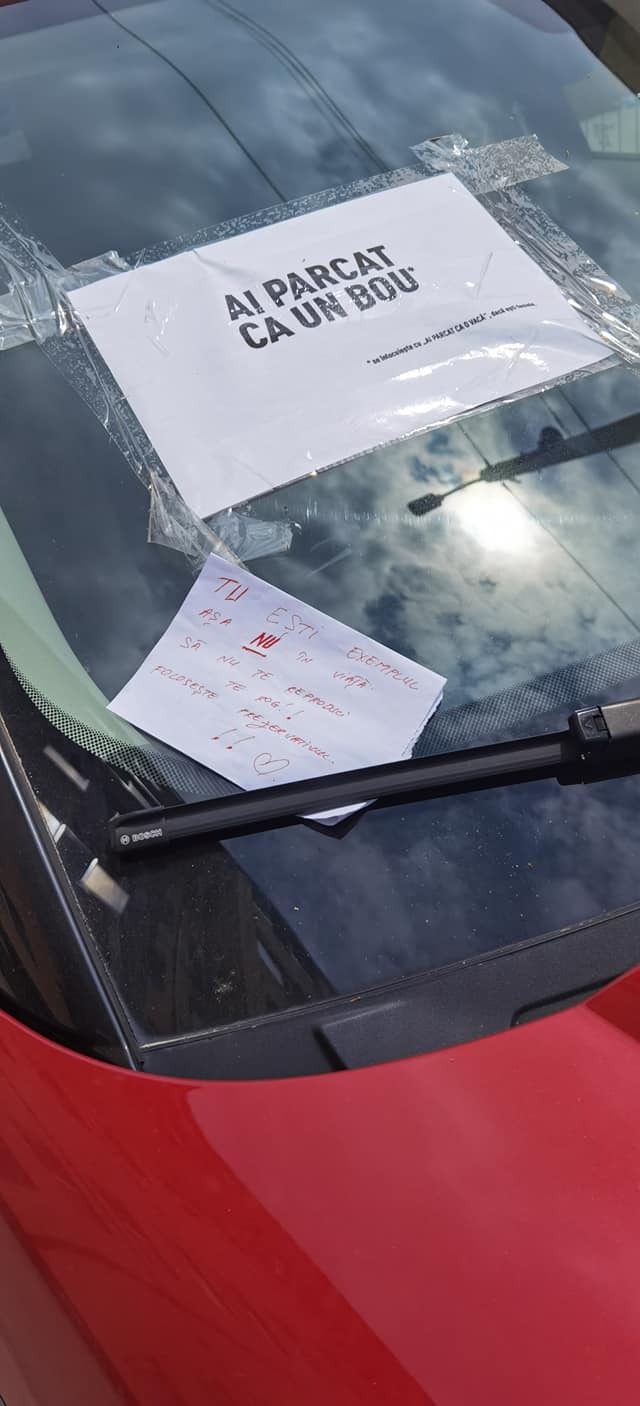 AI PARCAT
CA UN BOU*
* se înlocuiește cu „AI PARCAT CA O VACĂ”, dacă ești femeie.
TU EȘTI EXEMPLUL
AȘA NU ÎN VIAȚĂ.
SĂ NU TE REPRODUCI
FOLOSEȘTE TE ROG!!
PREZERVATIVUL.
!! ♡
BOSCH